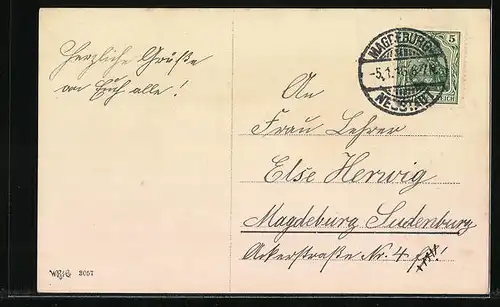 Herzliche Grüße
an Euch alle!
MAGDEBURG
-5.1.
NEUSTADT
5
REICH
An
Frau Lehrer
Else Herwig
Magdeburg Sudenburg
Ackerstraße Nr. 4
3057